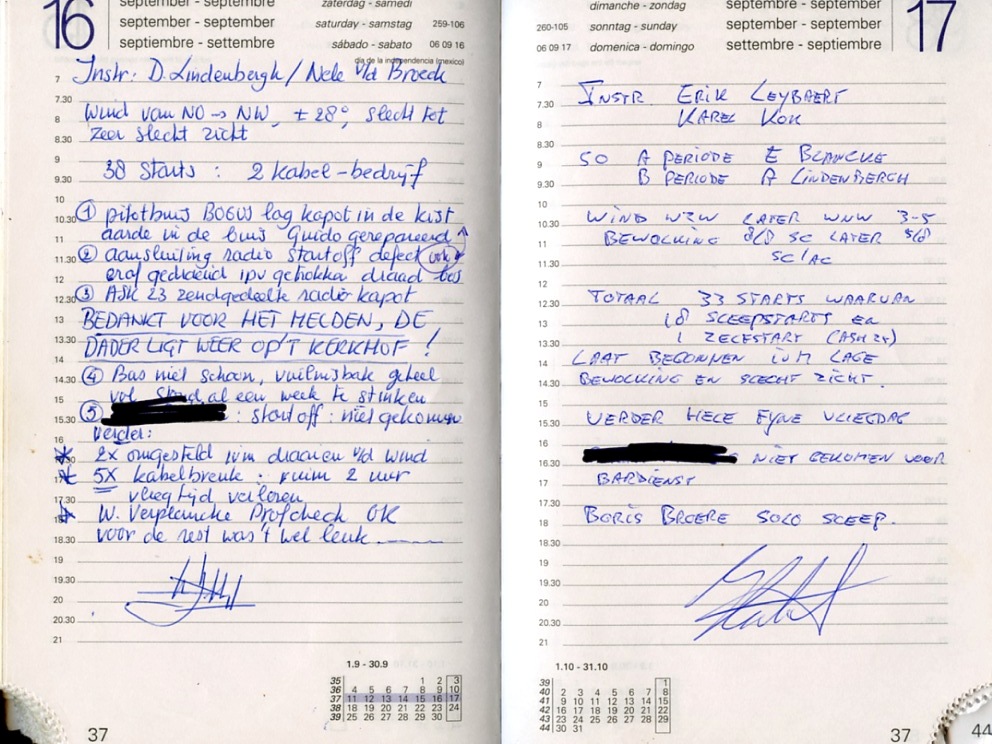 16
septembre - september
september - september
septiembre - settembre
zaterdag - samedi
saturday - samstag 259-106
sábado - sabato 06 09 16
día de la independencia (mexico)
7 Instr: D. Lindenbergh / Nele v/d Broeck
7.30
8 Wind van NO -> NW, ± 28°, slecht tot
8.30 zeer slecht zicht
9
9.30 38 Starts : 2 kabel-bedrijf
10
10.30 ① pitotbuis BOGUS lag kapot in de kist
11 aarde in de buis Guido gerepareerd
11.30 ② aansluiting radio startoff defect
12 eraf gedraaid ipv getrokken draad los
12.30 ③ ASK 23 zendgedeelte radio kapot
13 BEDANKT VOOR HET MELDEN, DE
13.30 DADER LIGT WEER OP'T KERKHOF !
14
14.30 ④ Bus niet schoon, vuilnisbak geheel
15 vol al een week te stinken
15.30 ⑤ : startoff : niet gekomen
16 verder:
16.30 * 2x omgesteld ivm draaien v/d wind
17 * 5X kabelbreuk : ruim 2 uur
17.30 vliegtijd verloren
18 * W. Verplancke Profcheck OK
18.30 voor de rest was't wel leuk
19
19.30
20
20.30
21
1.9 - 30.9
35 1 2 3
36 4 5 6 7 8 9 10
37 11 12 13 14 15 16 17
38 18 19 20 21 22 23 24
39 25 26 27 28 29 30
37
17
dimanche - zondag
260-105 sonntag - sunday
06 09 17 domenica - domingo
septembre - september
september - september
settembre - septiembre
7 INSTR ERIK LEYBAERT
7.30
8 KAREL KOK
8.30
9 SO A PERIODE E BLANCKE
9.30 B PERIODE A LINDENBERGH
10
10.30 WIND WZW LATER WNW 3-5
11 BEWOLKING 8/8 SC LATER 5/8
11.30 SC/AC
12
12.30 TOTAAL 33 STARTS WAARVAN
13 18 SLEEPSTARTS EN
13.30 1 ZELFSTART (ASH 25)
14 LAAT BEGONNEN IVM LAGE
14.30 BEWOLKING EN SLECHT ZICHT.
15
15.30 VERDER HELE FYNE VLIEGDAG
16
16.30 NIET GEKOMEN VOOR
17 BARDIENST
17.30
18 BORIS BROERE SOLO SLEEP.
18.30
19
19.30
20
20.30
21
1.10 - 31.10
39 1
40 2 3 4 5 6 7 8
41 9 10 11 12 13 14 15
42 16 17 18 19 20 21 22
43 23 24 25 26 27 28 29
44 30 31
37
44